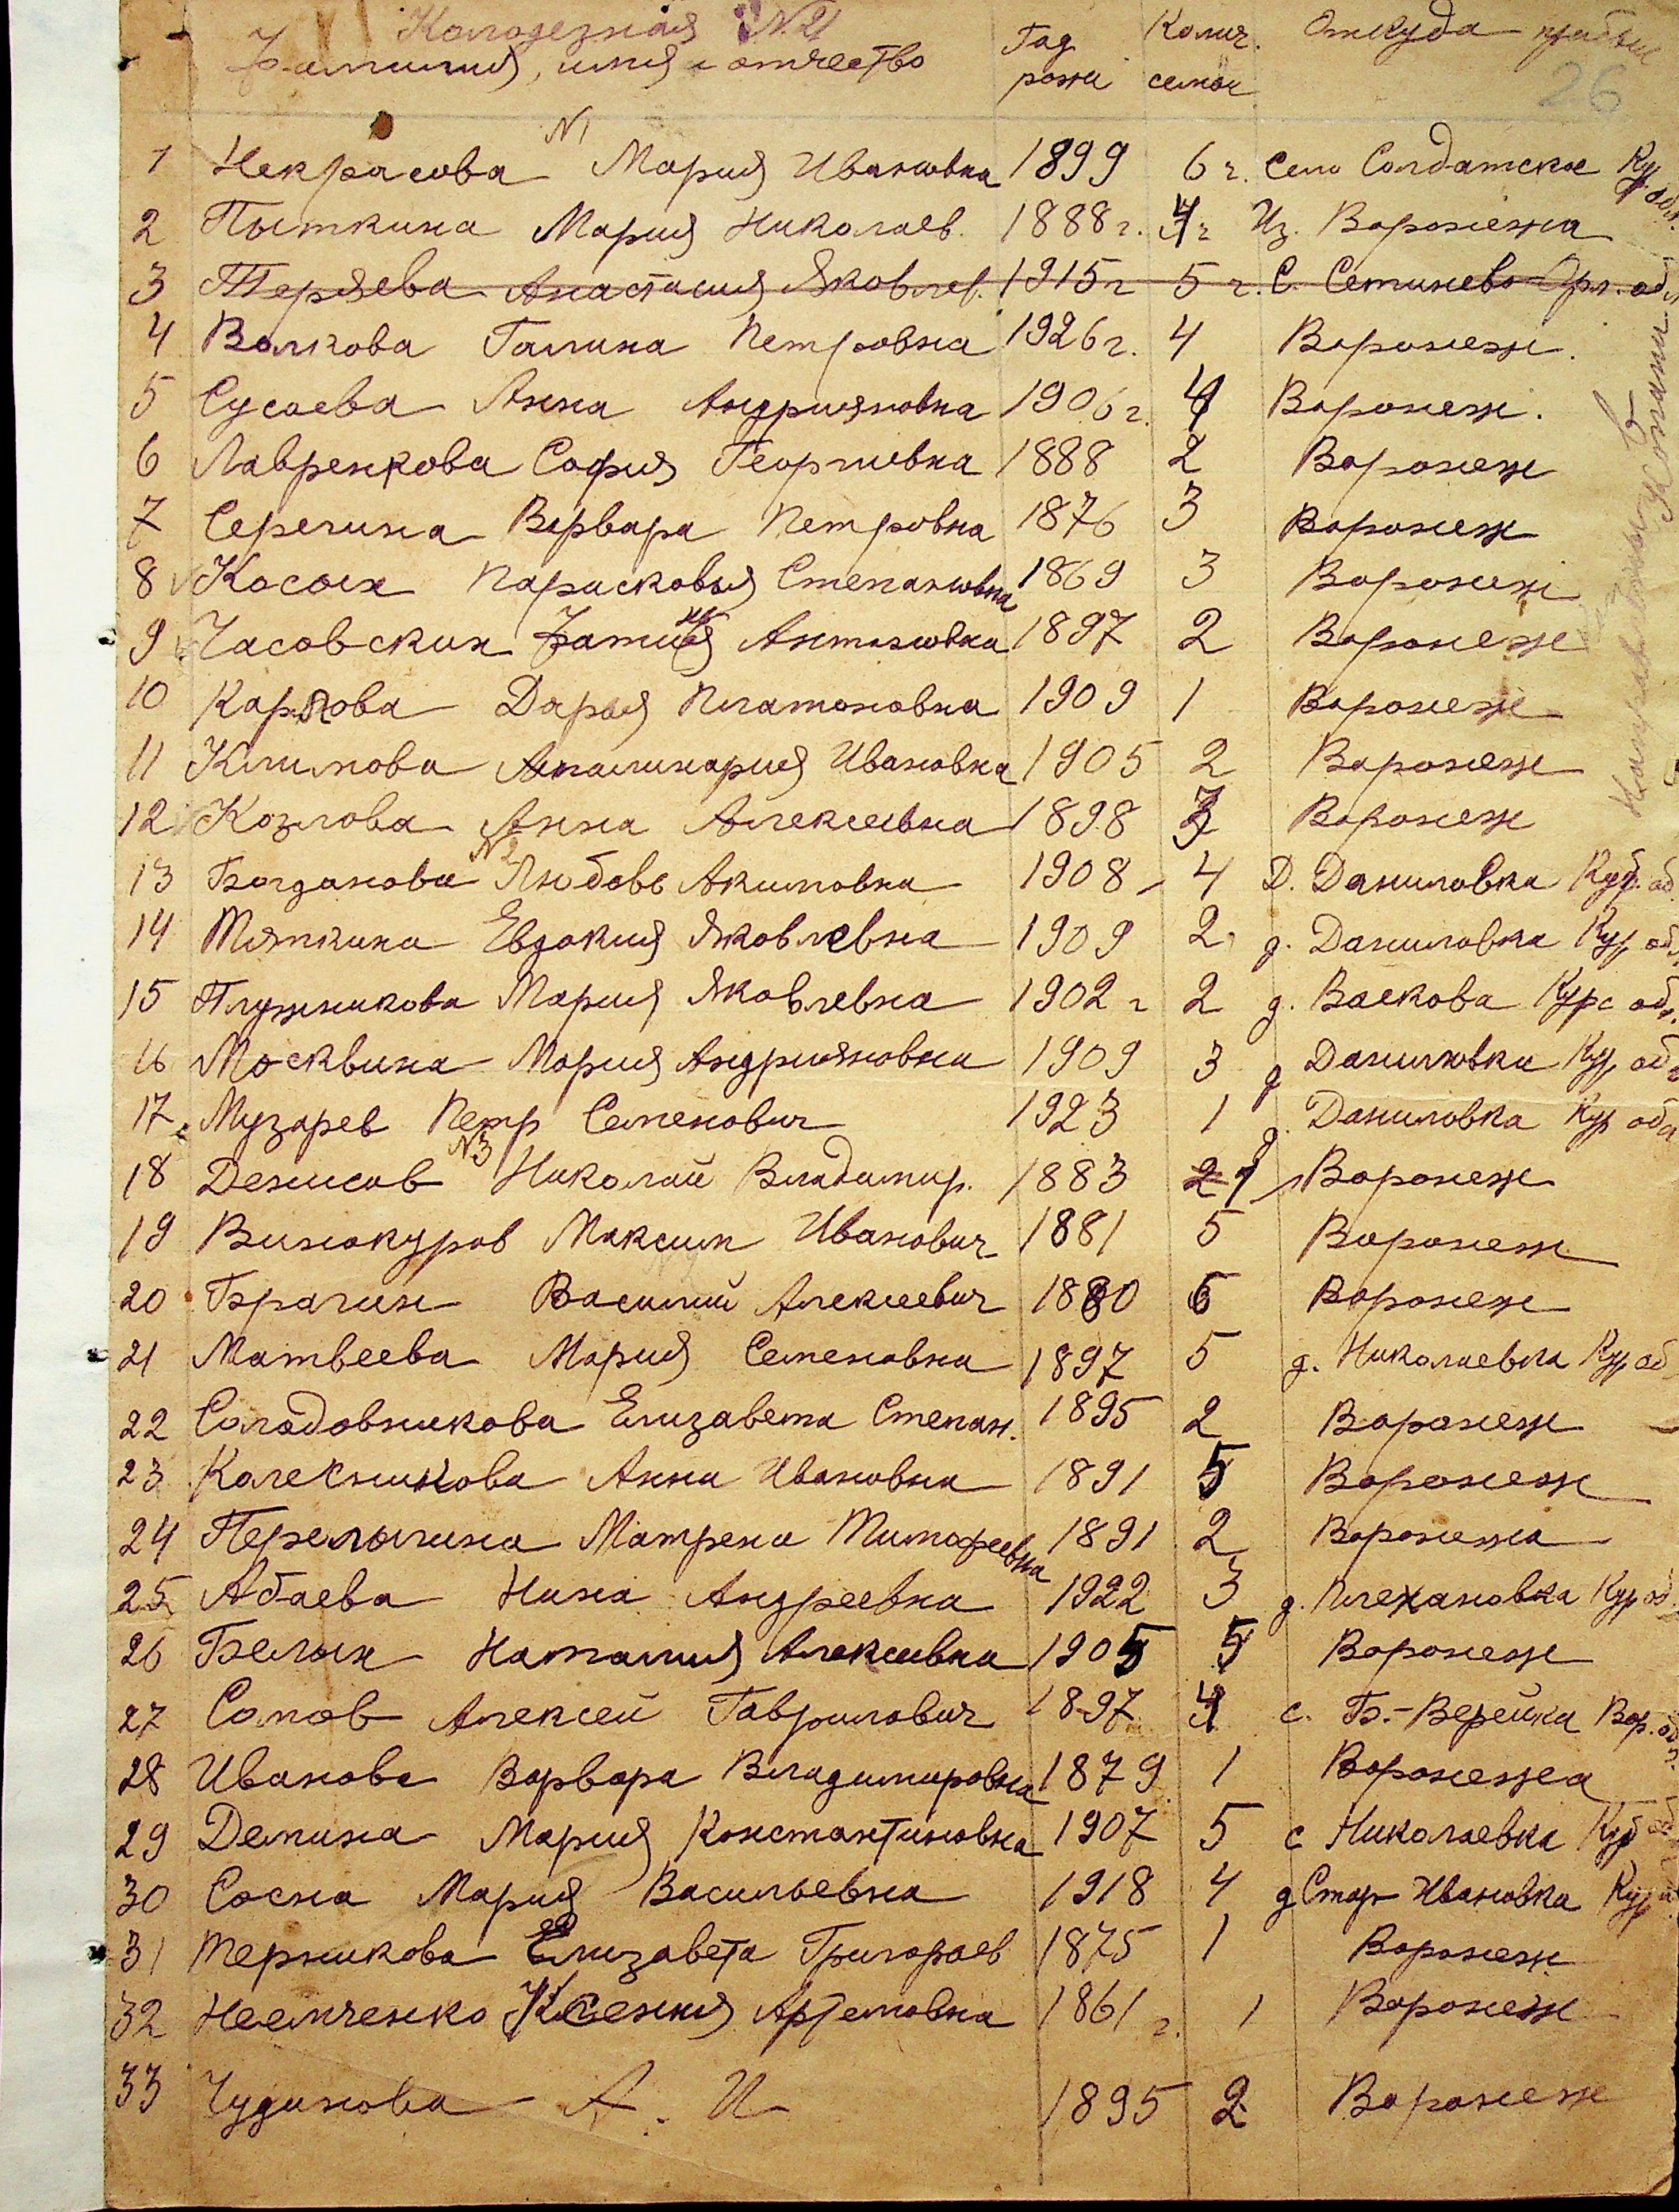 Колодезная №21
Фамилия, имя и отчество Год рожд Колич. семьи Откуда прибыл
26
№1
1 Некрасова Мария Ивановна 1899 6 ч. Село Солдатское Кур. обл.
2 Пыткина Мария Николаев. 1888 г. 4 ч Из. Воронежа
3 Теряева Анастасия Яковлев. 1915 г 5 ч. С. Сетинево Орл. обл
4 Волкова Галина Петровна 1926 г. 4 Воронеж.
5 Сусаева Анна Андрияновна 1906 г. 4 Воронеж.
6 Лавренкова София Георгиевна 1888 2 Воронеж
7 Серегина Варвара Петровна 1876 3 Воронеж
8 Косых Парасковья Степановна 1869 3 Воронеж
9 Часовских Антоновна 1897 2 Воронеж
10 Карпова Дарья Платоновна 1909 1 Воронеж
11 Климова Апалинария Ивановна 1905 2 Воронеж
12 Козлова Анна Алексеевна 1898 3 Воронеж
№2
13 Богданова Любовь Акимовна 1908 4 Д. Даниловка Кур. об
14 Тяпкина Евдокия Яковлевна 1909 2 д. Даниловка Кур обл
15 Плужникова Мария Яковлевна 1902 г 2 д. Васкова Курс обл.
16 Москвина Мария Андрияновна 1909 3 д Даниловка Кур обл
17 Музарев Петр Семенович 1923 1 д. Даниловка Кур обл
№3
18 Денисов Николай Владимир. 1883 2 1 Воронеж
19 Винокуров Максим Иванович 1881 5 Воронеж
20 Брагин Василий Алексеевич 1880 6 Воронеж
21 Матвеева Мария Семеновна 1897 5 д. Николаевка Кур об
22 Солодовникова Елизавета Степан. 1895 2 Воронеж
23 Колесникова Анна Ивановна 1891 5 Воронеж
24 Перелыгина Матрена Тимофеевна 1891 2 Воронежа
25 Абаева Нина Андреевна 1922 3 д. Плехановка Кур об.
26 Белых Наталия Алексеевна 1905 5 Воронеж
27 Сомов Алексей Гаврилович 1897 4 с. Б.-Верейка Вор. обл.
28 Иванова Варвара Владимировна 1879 1 Воронежа
29 Демина Мария Константиновна 1907 5 с Николаевка Кур об
30 Сосна Мария Васильевна 1918 4 д Стар Ивановка Кур
31 Терникова Елизавета Григорьев 1875 1 Воронеж
32 Неемченко Ксения Артемовна 1861 г. 1 Воронеж
33 Чудинова А. И 1895 2 Воронеж